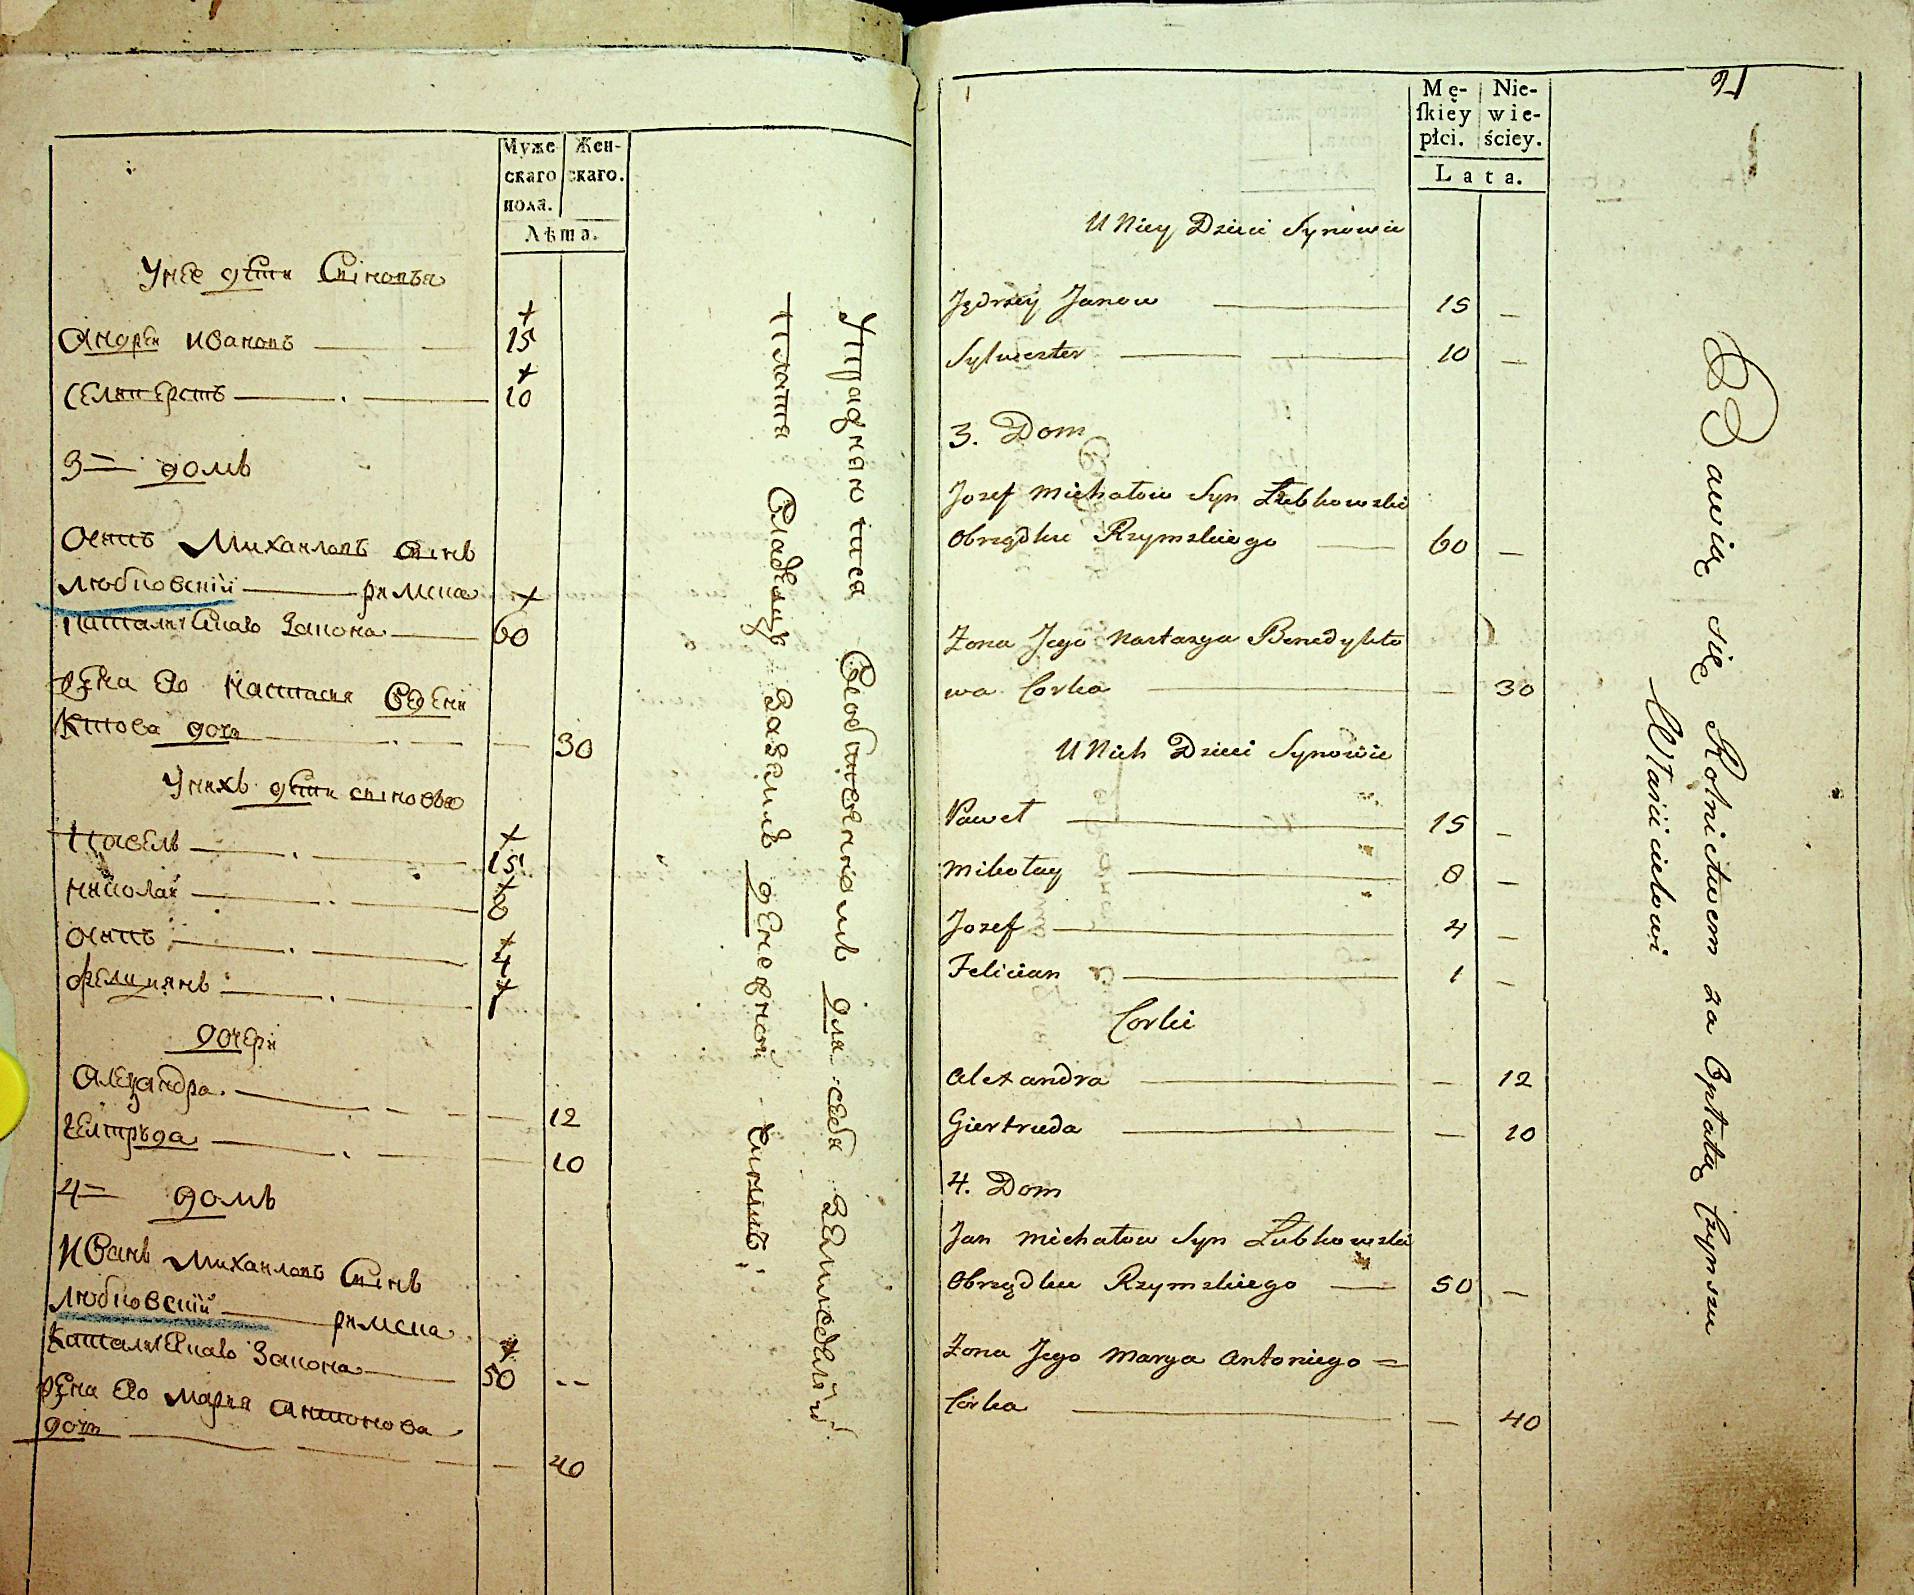 Муже
скаго
пола.
Жен-
скаго.
Лѣта.
У нее дѣти Сыновья
Андрей Ивановъ 15
Селиверстъ 10
3 = домъ
Осипъ Михайловъ Сынъ
Любковскій римска
католическаго Закона 60
жена его Настасия Бедени
ктова дочь 30
У нихъ дѣти сыновья
Павелъ 15
Николай 8
Осипъ 4
Фелициянъ 1
дочери
Александра 12
Гелтруда 10
4 = домъ
Иванъ Михайловъ Сынъ
Любковскій римска
Католическаго Закона 50 --
жена его Мария Антонова
дочь 40
Упражняютса Свобственномъ для себя земледѣлий
плотя Владелцу Зазѣмлю денежной Чиншъ
2
Mę-
ſkiéy
płci.
Nie-
wie-
ściey.
Lata.
U Niey Dzieci Synowie
Jędrzey Janow 15 –
Sylwester 10 –
3. Dom
Jozef Michałow Syn Lubkowski
Obrządku Rzymskiego 60 –
Żona Jego Nastazya Benedykto
wa Corka – 30
U Nich Dzieci Synowie
Paweł 15 –
Mikołay 8 –
Jozef 4 –
Felician 1 –
Corki
Alexandra – 12
Giertruda – 10
4. Dom
Jan Michałow Syn Lubkowski
Obrządku Rzymskiego 50 –
Żona Jego Marya Antoniego =
Córka – 40
Bawią się Rolnictwem za Opłatą Czynszu
Właścicielowi